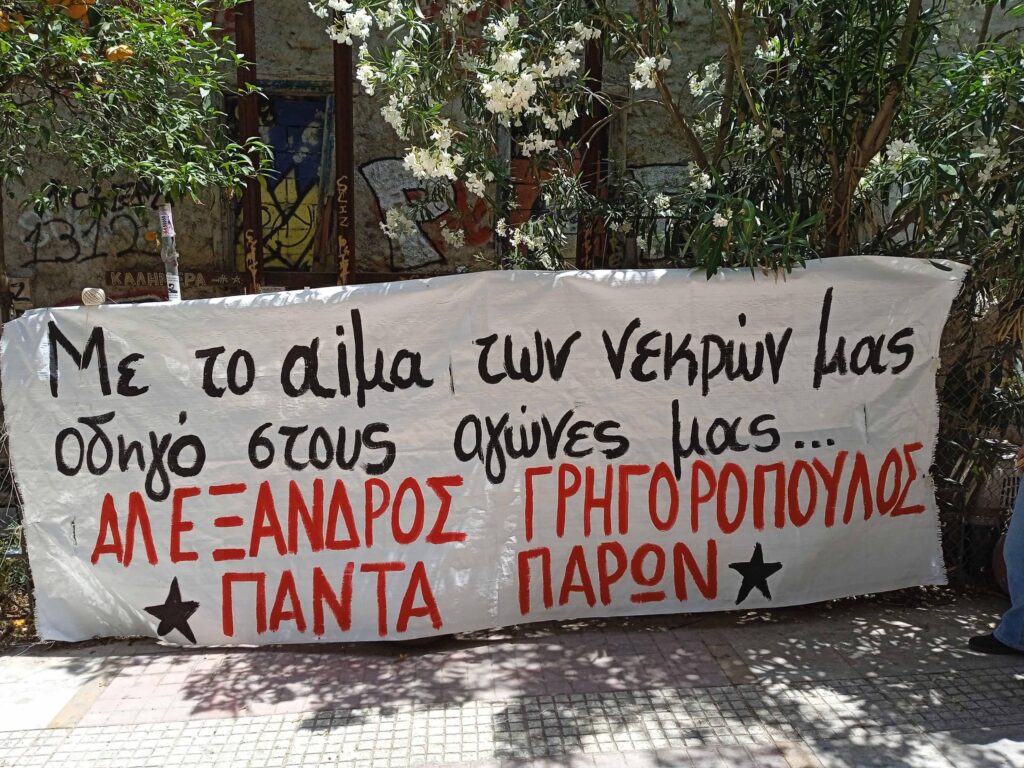 1312
ΚΑΛΗΜΕΡΑ
Με το αίμα των νεκρών μας
οδηγό στους αγώνες μας...
ΑΛΕΞΑΝΔΡΟΣ ΓΡΗΓΟΡΟΠΟΥΛΟΣ
ΠΑΝΤΑ ΠΑΡΩΝ